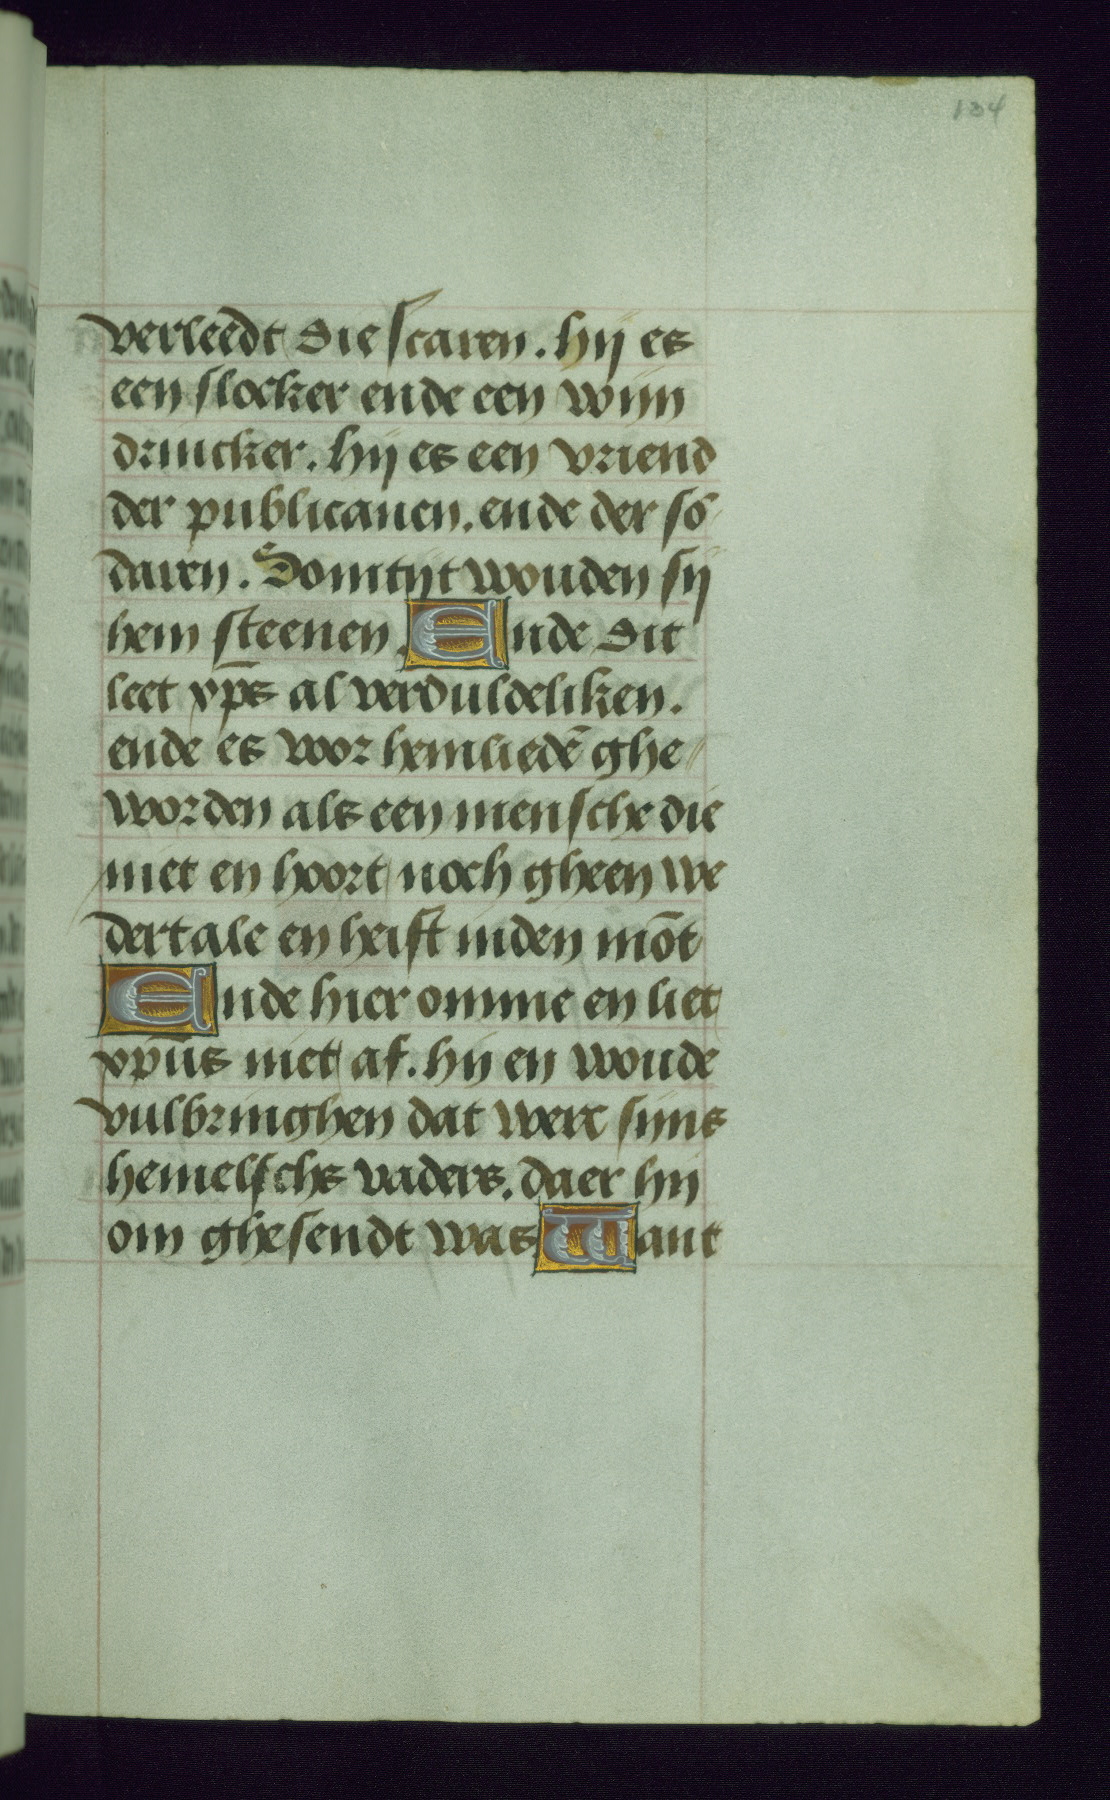 134
verleedt die scaren. hij es
een slocker ende een wijn
drincker. hij es een vriend
der publicanen. ende der so
daren. Somtijt wouden sij
hem steenen. Ende dit
leet xp̄s al verduldeliken.
ende es voor hemliedē ghe
worden als een mensche die
niet en hoort noch gheen we
dertale en heift inden mōt
Ende hier omme en liet
xpūs niet af. hij en woude
vulbringhen dat werc sijns
hemelschs vaders. daer hij
om ghesendt was Want